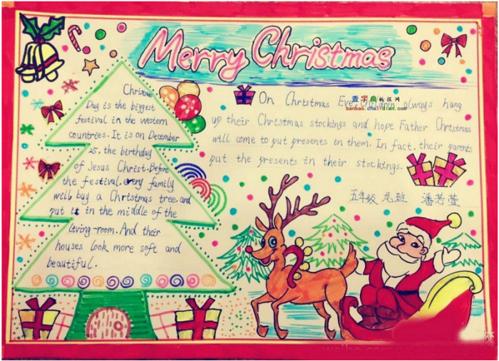 Merry Christmas
Christmas
Day is the biggest
festival in the western
countries. It is on December
25, the birthday
of Jesus Christ. Before
the festival, every family
will buy a Christmas tree, and
put it in the middle of the
living-room. And their
houses look more soft and
beautiful.
On Christmas Eve, children always hang
up their Christmas stockings and hope Father Christmas
will come to put presents in them. In fact, their parents
put the presents in their stockings.
五年级